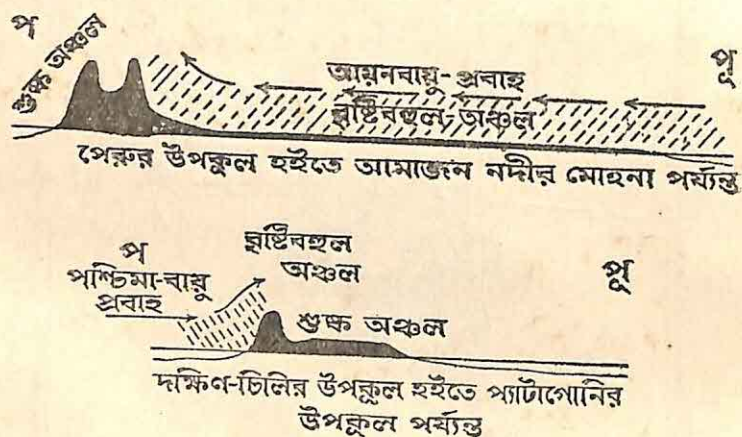 প
পূ
শুষ্ক অঞ্চল
আয়নবায়ু-প্রবাহ
বৃষ্টিবহুল-অঞ্চল
পেরুর উপকূল হইতে আমাজন নদীর মোহনা পর্য্যন্ত
প
পূ
পশ্চিমা-বায়ু
প্রবাহ
বৃষ্টিবহুল
অঞ্চল
শুষ্ক অঞ্চল
দক্ষিণ-চিলির উপকূল হইতে প্যাটাগোনির
উপকূল পর্য্যন্ত